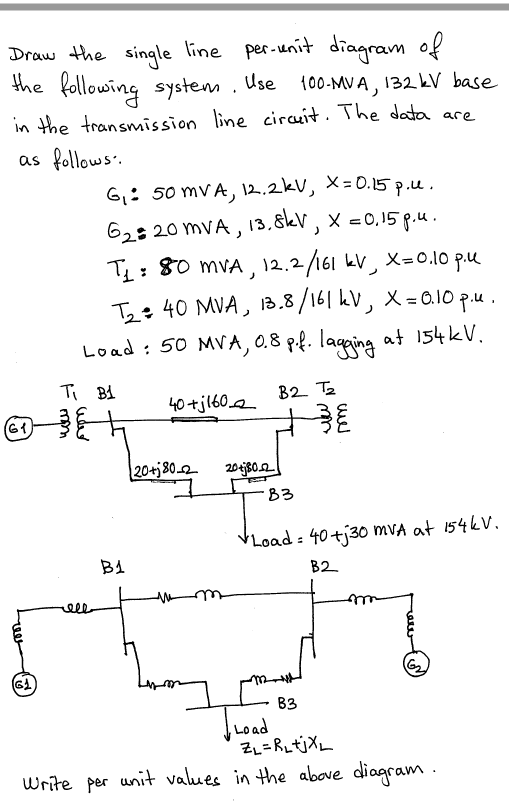 Draw the single line per-unit diagram of
the following system. Use 100-MVA, 132kV base
in the transmission line circuit. The data are
as follows:
G1: 50 MVA, 12.2kV, X=0.15 p.u.
G2: 20 MVA, 13.8kV, X=0.15 p.u.
T1: 80 MVA, 12.2/161 kV, X=0.10 p.u
T2: 40 MVA, 13.8/161 kV, X=0.10 p.u.
Load: 50 MVA, 0.8 p.f. lagging at 154kV.
T1 B1 40+j160Ω B2 T2
G1
20+j80Ω 20+j80Ω
B3
Load = 40+j30 MVA at 154kV.
B1 B2
G1 G2
B3
Load
ZL=RL+jXL
Write per unit values in the above diagram.